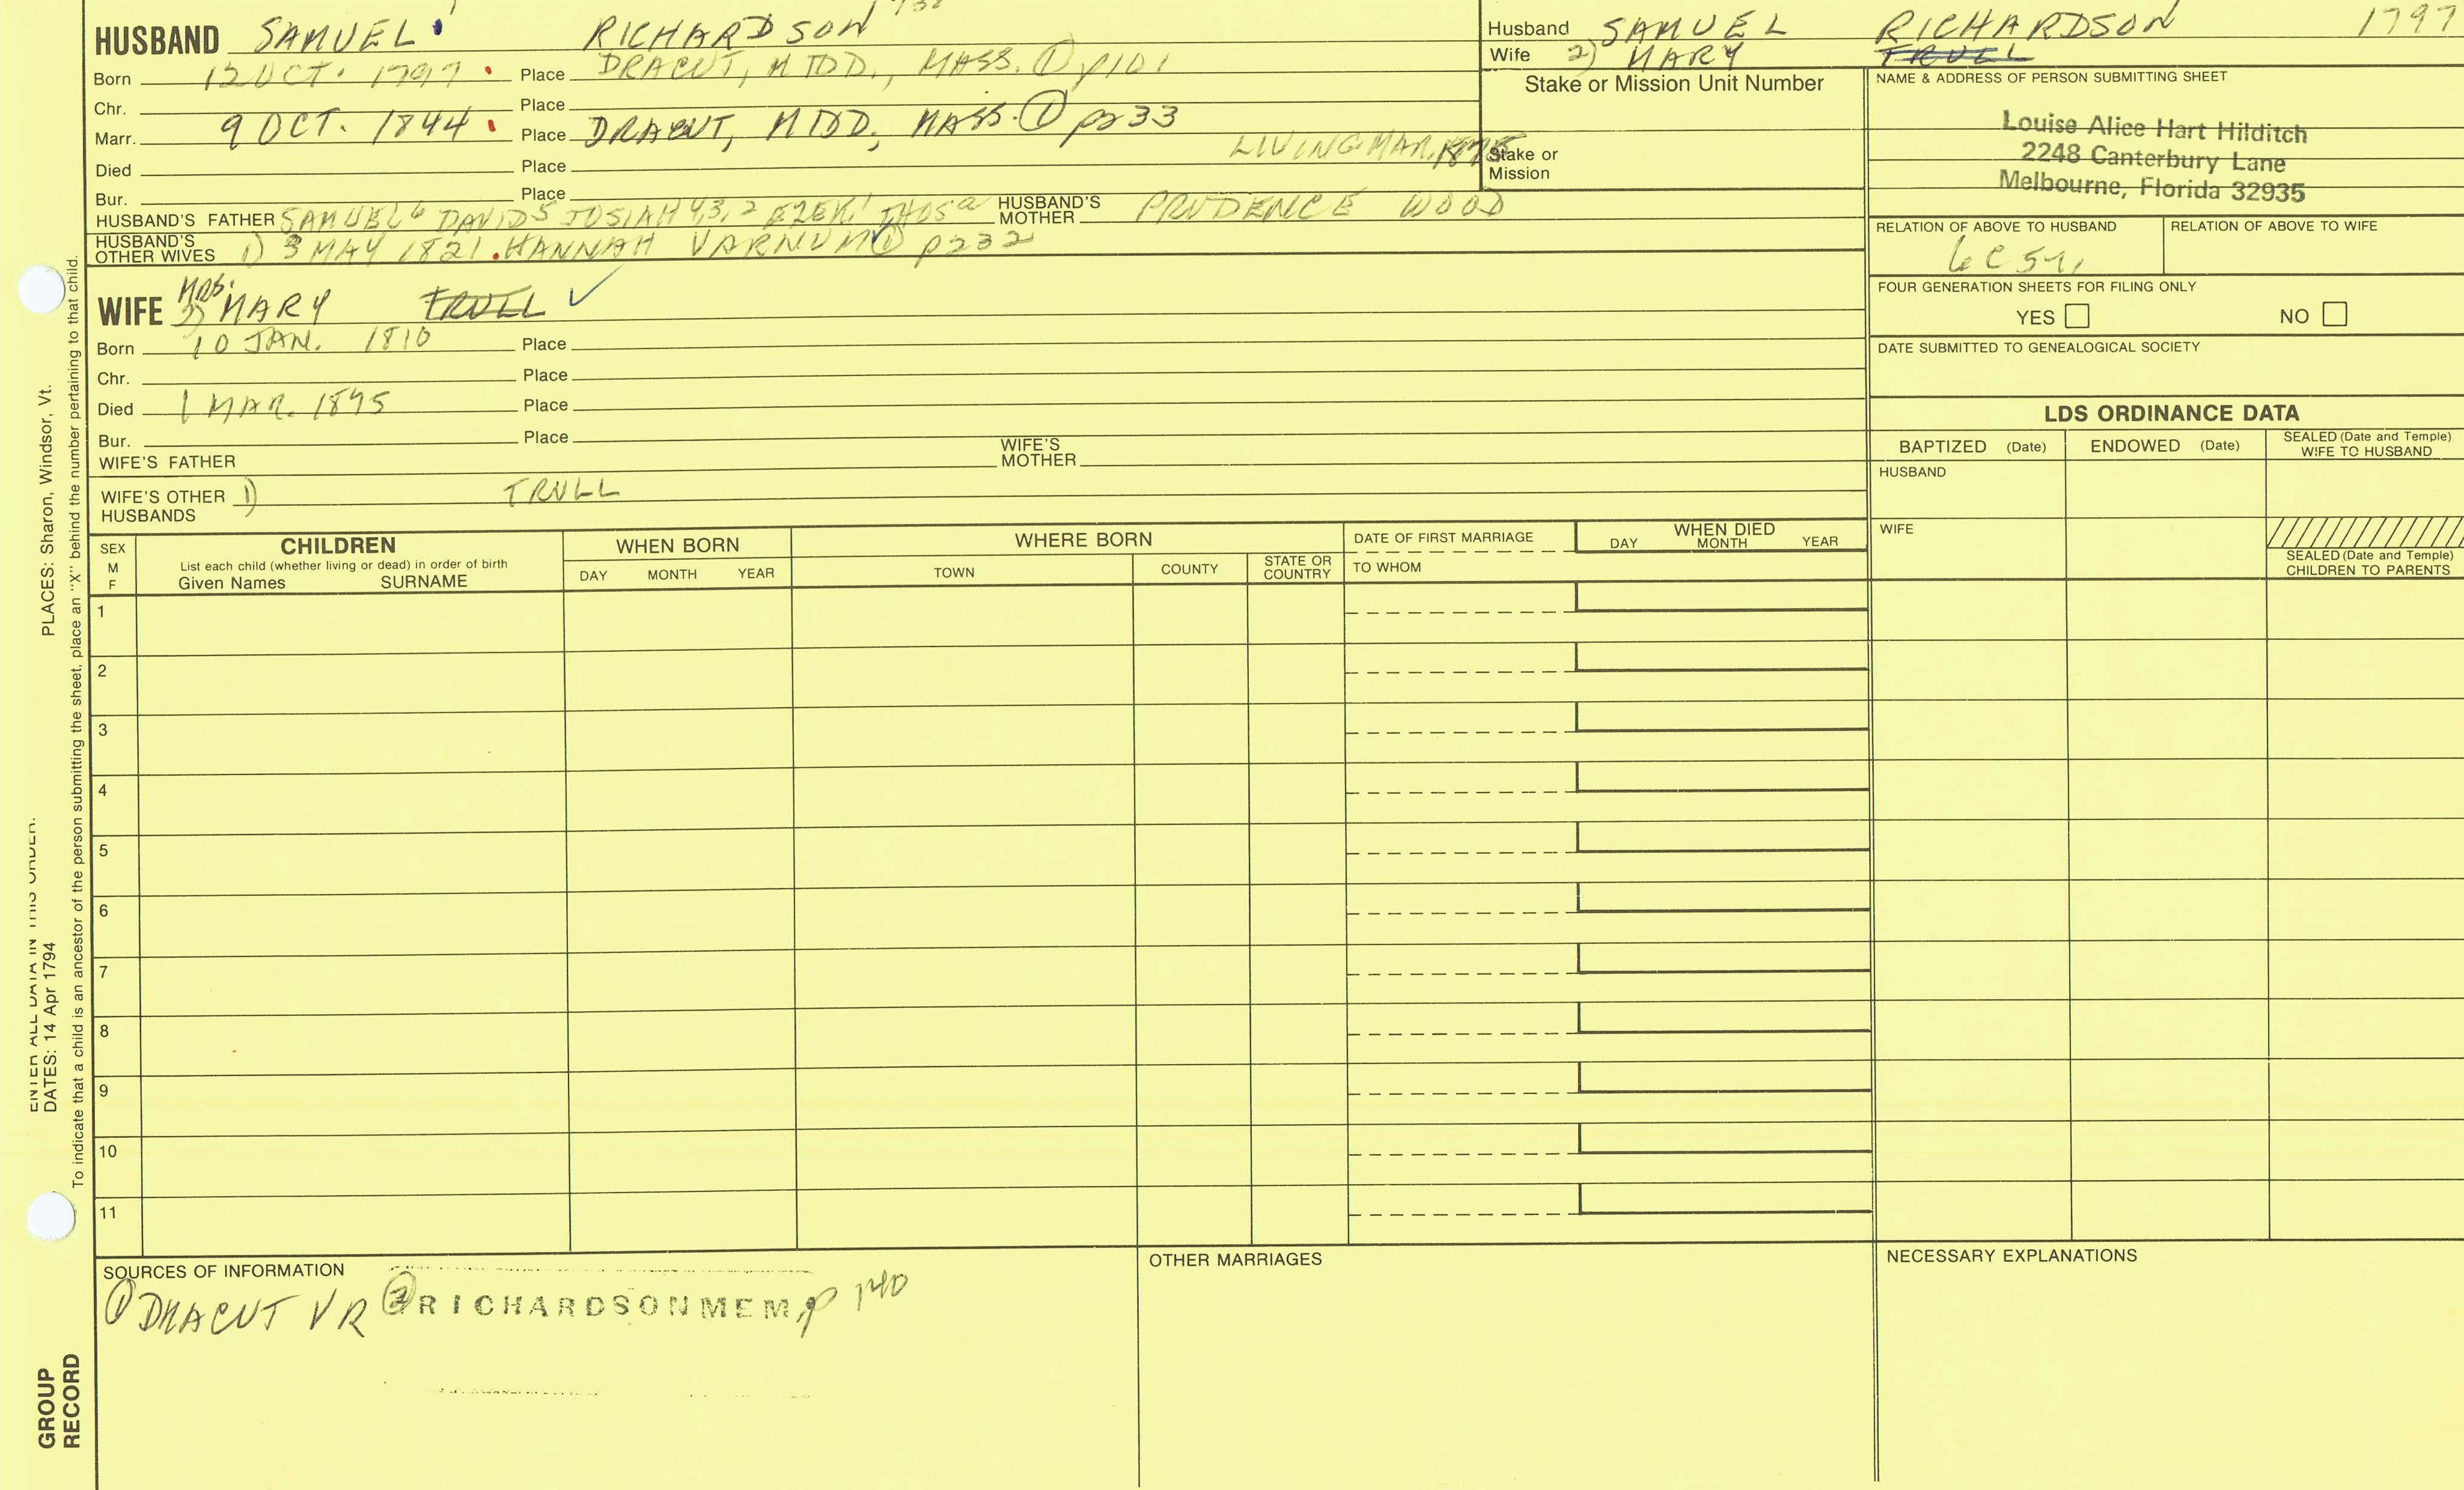 HUSBAND SAMUEL RICHARDSON
Born 12 OCT. 1797 Place DRACUT, MIDD., MASS. ① p101
Chr. Place
Marr. 9 OCT. 1844 Place DRACUT, MIDD, MASS. ① p233
LIVING MAR.
Died Place
Bur. Place
HUSBAND'S FATHER SAMUEL6 DAVID5 JOSIAH4,3,2 EZEK1 THOSa HUSBAND'S MOTHER PRUDENCE WOOD
HUSBAND'S OTHER WIVES 1) 3 MAY 1821. HANNAH VARNUM ① p232
WIFE MRS. 2) MARY TRULL ✓
Born 10 JAN. 1810 Place
Chr. Place
Died 1 MAR. 1895 Place
Bur. Place
WIFE'S FATHER WIFE'S MOTHER
WIFE'S OTHER HUSBANDS 1) TRULL
Husband SAMUEL RICHARDSON 1797
Wife 2) MARY TRULL
Stake or Mission Unit Number
Stake or
Mission
NAME & ADDRESS OF PERSON SUBMITTING SHEET
Louise Alice Hart Hilditch
2248 Canterbury Lane
Melbourne, Florida 32935
RELATION OF ABOVE TO HUSBAND RELATION OF ABOVE TO WIFE
FOUR GENERATION SHEETS FOR FILING ONLY
YES NO
DATE SUBMITTED TO GENEALOGICAL SOCIETY
LDS ORDINANCE DATA
BAPTIZED (Date) ENDOWED (Date) SEALED (Date and Temple) WIFE TO HUSBAND
HUSBAND
WIFE
SEALED (Date and Temple) CHILDREN TO PARENTS
SEX M F
CHILDREN
List each child (whether living or dead) in order of birth
Given Names SURNAME
WHEN BORN
DAY MONTH YEAR
WHERE BORN
TOWN COUNTY STATE OR COUNTRY
DATE OF FIRST MARRIAGE
TO WHOM
WHEN DIED
DAY MONTH YEAR
1
2
3
4
5
6
7
8
9
10
11
SOURCES OF INFORMATION
① DRACUT VR ② RICHARDSON MEM, p 140
OTHER MARRIAGES
NECESSARY EXPLANATIONS
ENTER ALL DATA IN THIS ORDER:
DATES: 14 Apr 1794 PLACES: Sharon, Windsor, Vt.
To indicate that a child is an ancestor of the person submitting the sheet, place an "X" behind the number pertaining to that child.
GROUP
RECORD